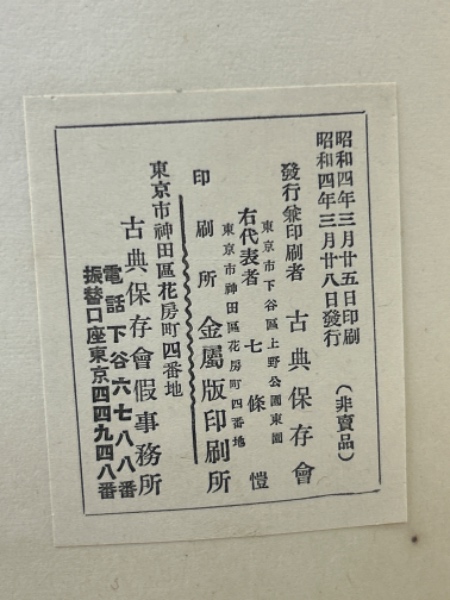 昭和四年三月廿五日印刷
昭和四年三月廿八日發行
(非賣品)
發行兼印刷者 古典保存會
東京市下谷區上野公園東園
右代表者 七條愷
東京市神田區花房町四番地
印刷所 金屬版印刷所
東京市神田區花房町四番地
古典保存會假事務所
電話下谷六七八八番
振替口座東京四四九四八番